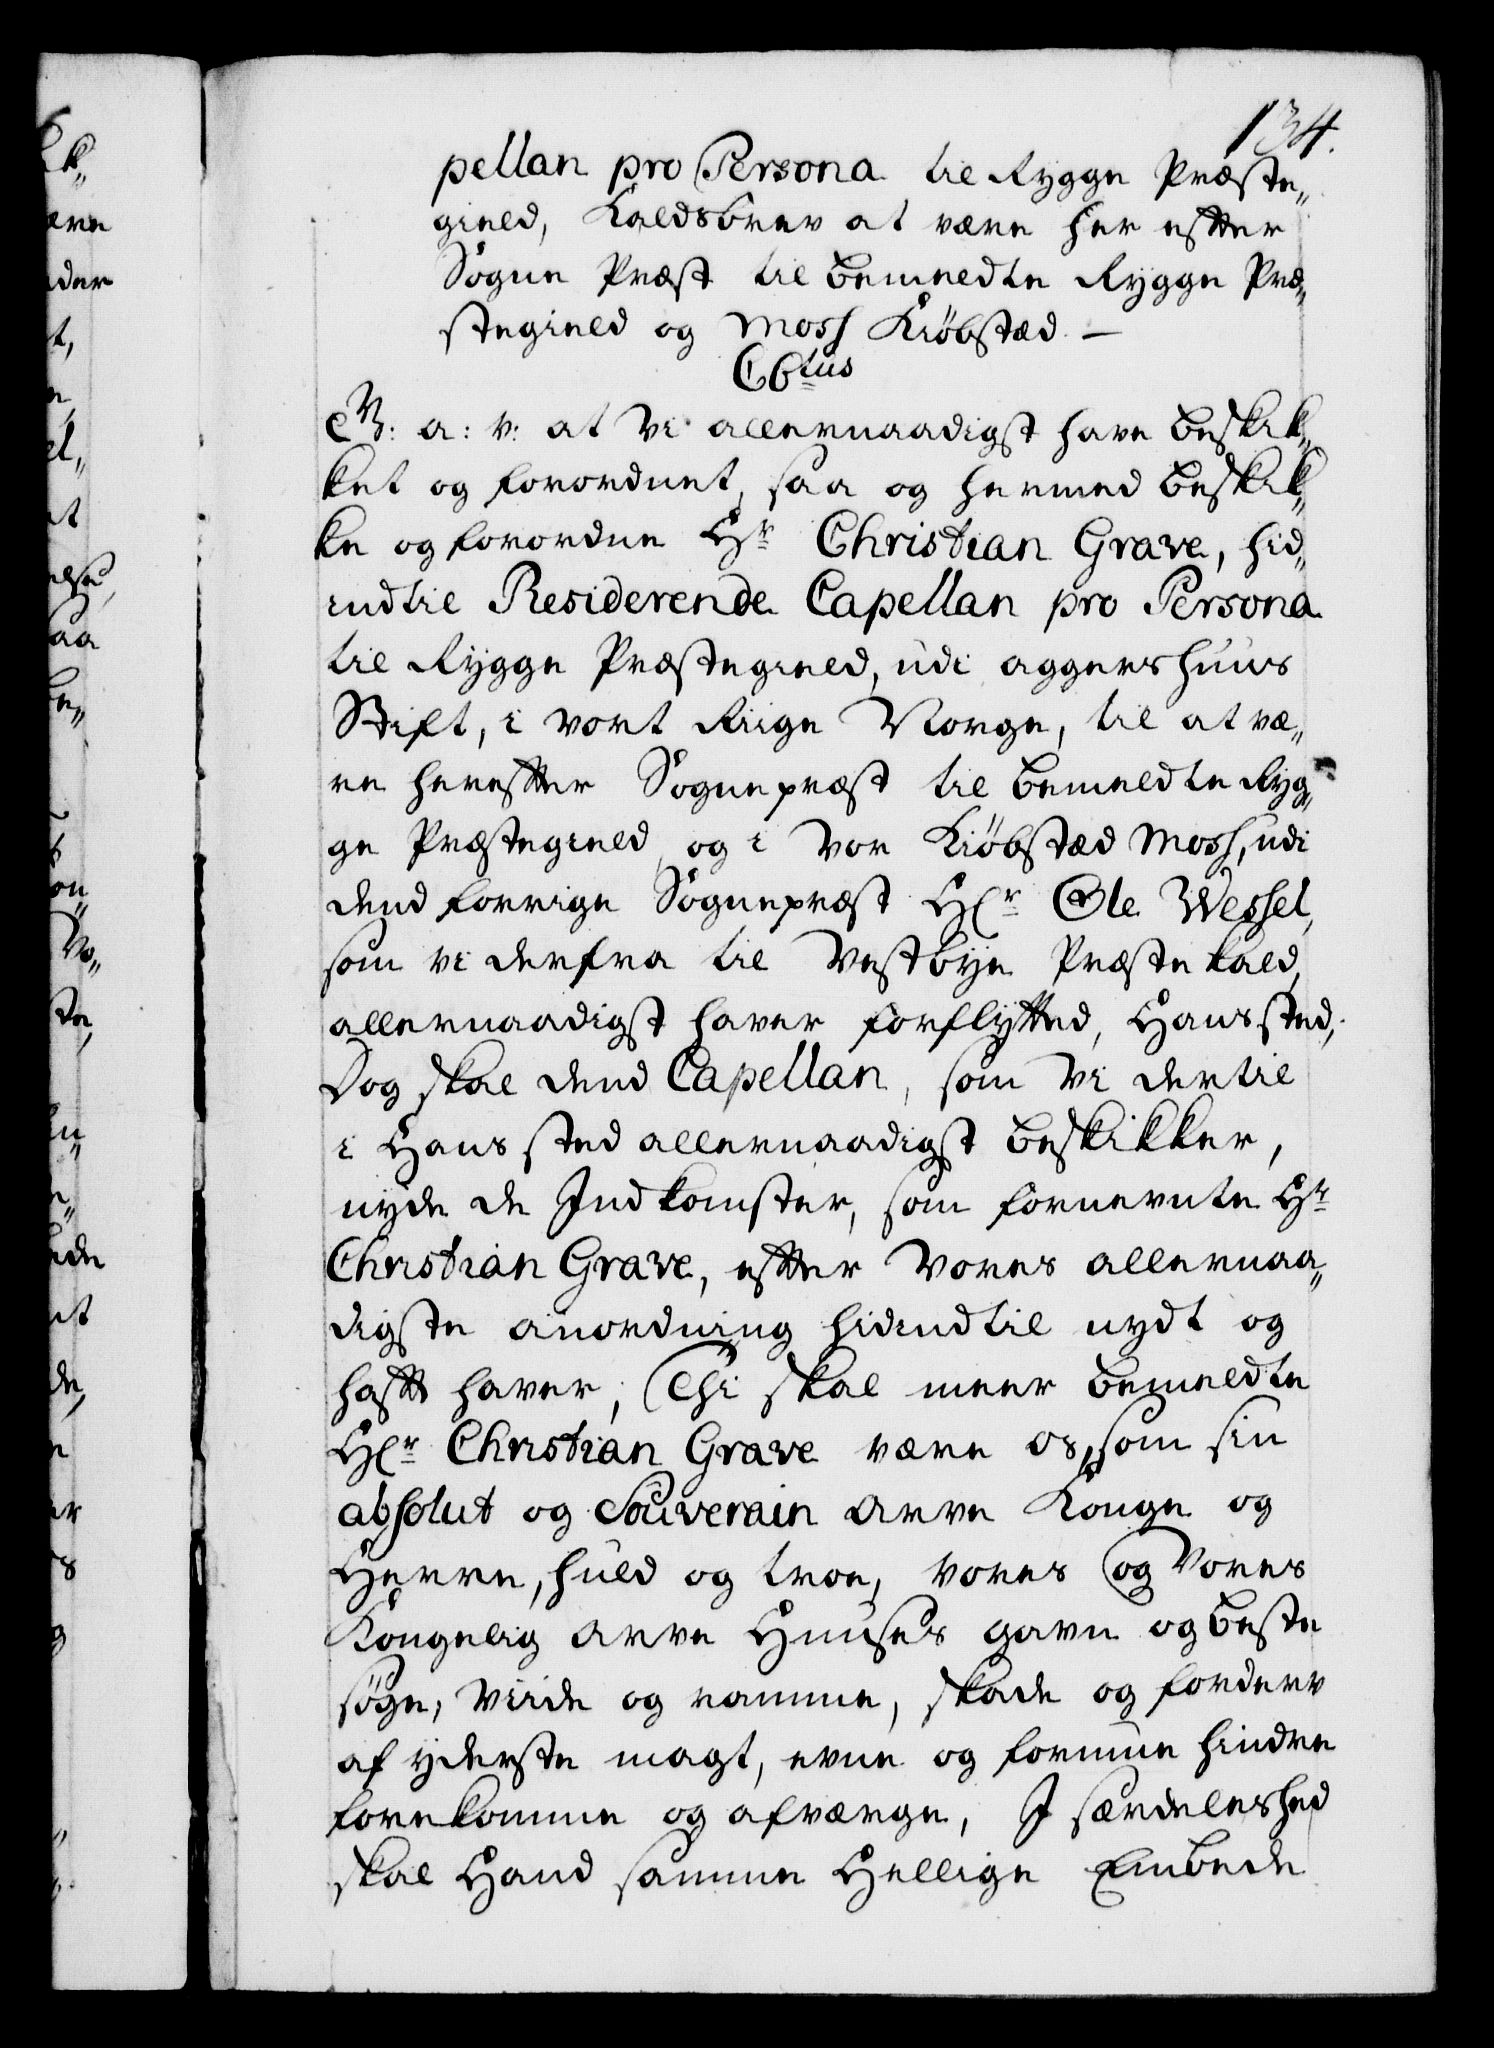 134.
pellan pro Persona til Rygge Præste„
gield, Kaldsbrev at være her efter
Sogne Præst til bemeldte Rygge Præ„
stegield og Moss Kiøbstæd. —
C6tus
G V: a: v: at Vi allernaadigst have beskik„
ket og forordnet, saa og hermed beskik„
ke og forordne Hr Christian Grave, hid„
indtil Residerende Capellan pro Persona
til Rygge Præstegield, udi Aggershuus
Stift, i vort Riige Norge, til at væ„
re herefter Sognepræst til bemeldte Ryg„
ge Præstegield, og i Vor Kiøbstæd Moss, udi
dend forrige Sognepræst Hr Ole Wessel,
som vi derfra til Vestbye Præstekald,
allernaadigst haver forflytted, Hans sted;
Dog skal dend Capellan, som Vi dertil
i Hans sted allernaadigst beskikker,
nyde de Indkomster, som fornevnte Hr
Christian Grave, efter Vores allernaa„
digste anordning hidindtil nydt og
haft haver; Thi skal meer bemeldte
Hr Christian Grave være os, som sin
absolut og Souverain Arve Konge og
Herre, huld og troe, vores og Vores
Kongelig Arve Huuses gavn og beste
søge, viide og ramme, skade og forderv
af yderste magt, evne og formue hindre
forekomme og afværge, J særdeleshed
skal Hand samme Hellige Embede